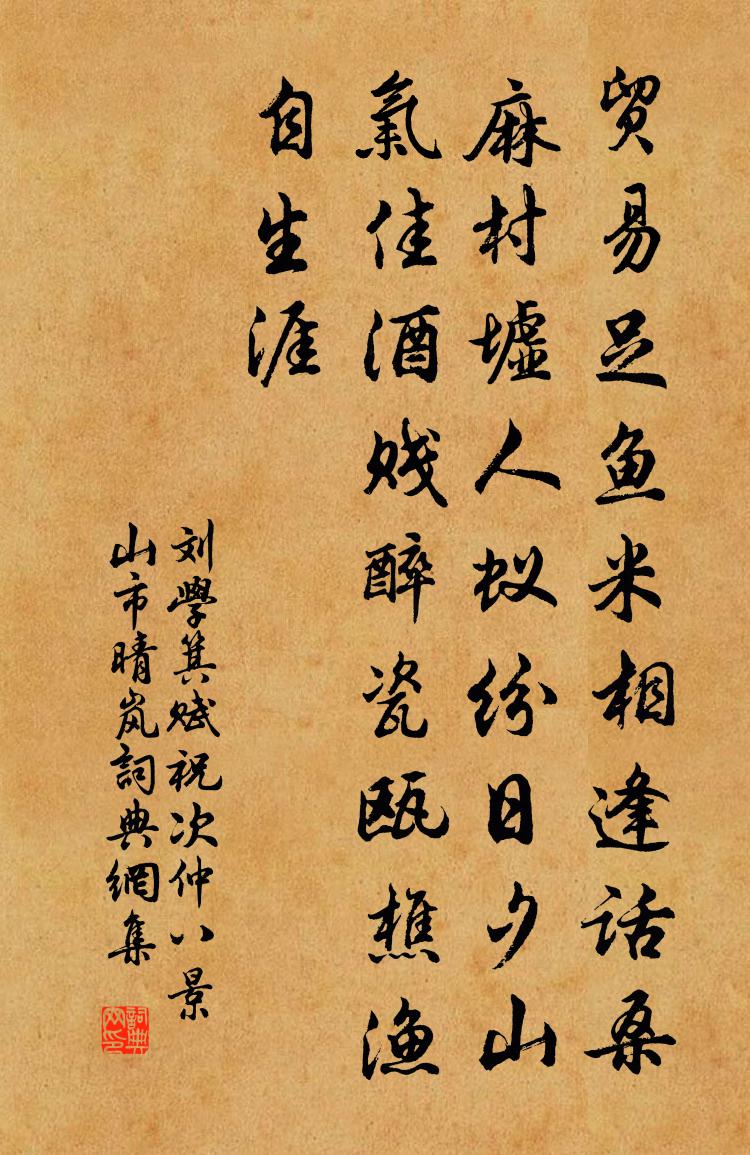 贸易足鱼米相逢话桑
麻村墟人蚁纷日夕山
氣佳酒贱醉瓷瓯樵渔
自生涯
刘學箕赋祝次仲八景
山市晴岚詞典網集
詞典网印